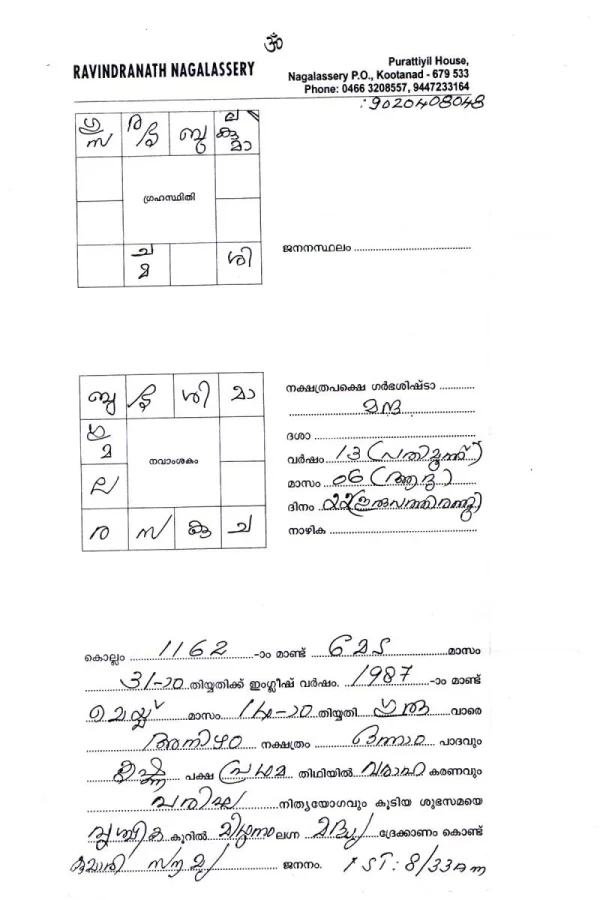 ॐ
RAVINDRANATH NAGALASSERY
Purattiyil House,
Nagalassery P.O., Kootanad - 679 533
Phone: 0466 3208557, 9447233164
: 9020408048
ഗു
സ
ര
ബു
ല
കു
മാ
ഗ്രഹസ്ഥിതി
ച
മ
ശി
ജനനസ്ഥലം
ബു
ശി
മാ
ഗു
മ
നവാംശകം
ല
ര
സ
കു
ച
നക്ഷത്രപക്ഷെ ഗർഭശിഷ്ടാ
മന്ദ
ദശാ
വർഷം 13 (പതിമൂന്ന്)
മാസം 06 (ആറു)
ദിനം 22 (ഇരുപത്തിരണ്ടു)
നാഴിക
കൊല്ലം 1162 -ാം മാണ്ട് മേട മാസം
31-ാം തിയ്യതിക്ക് ഇംഗ്ലീഷ് വർഷം. 1987 -ാം മാണ്ട്
മെയ്യ് മാസം 14-ാം തിയ്യതി ഗുരു വാരെ
അനിഴം നക്ഷത്രം ഒന്നാം പാദവും
കൃഷ്ണ പക്ഷ പ്രഥമ തിഥിയിൽ വരാഹ കരണവും
പരിഘ നിത്യയോഗവും കൂടിയ ശുഭസമയെ
വൃശ്ചിക കൂറിൽ മിഥുനം ലഗ്ന മദ്ധ്യ ദ്രേക്കാണം കൊണ്ട്
കുമാരി സൗമ്യ ജനനം. IST: 8/33 am